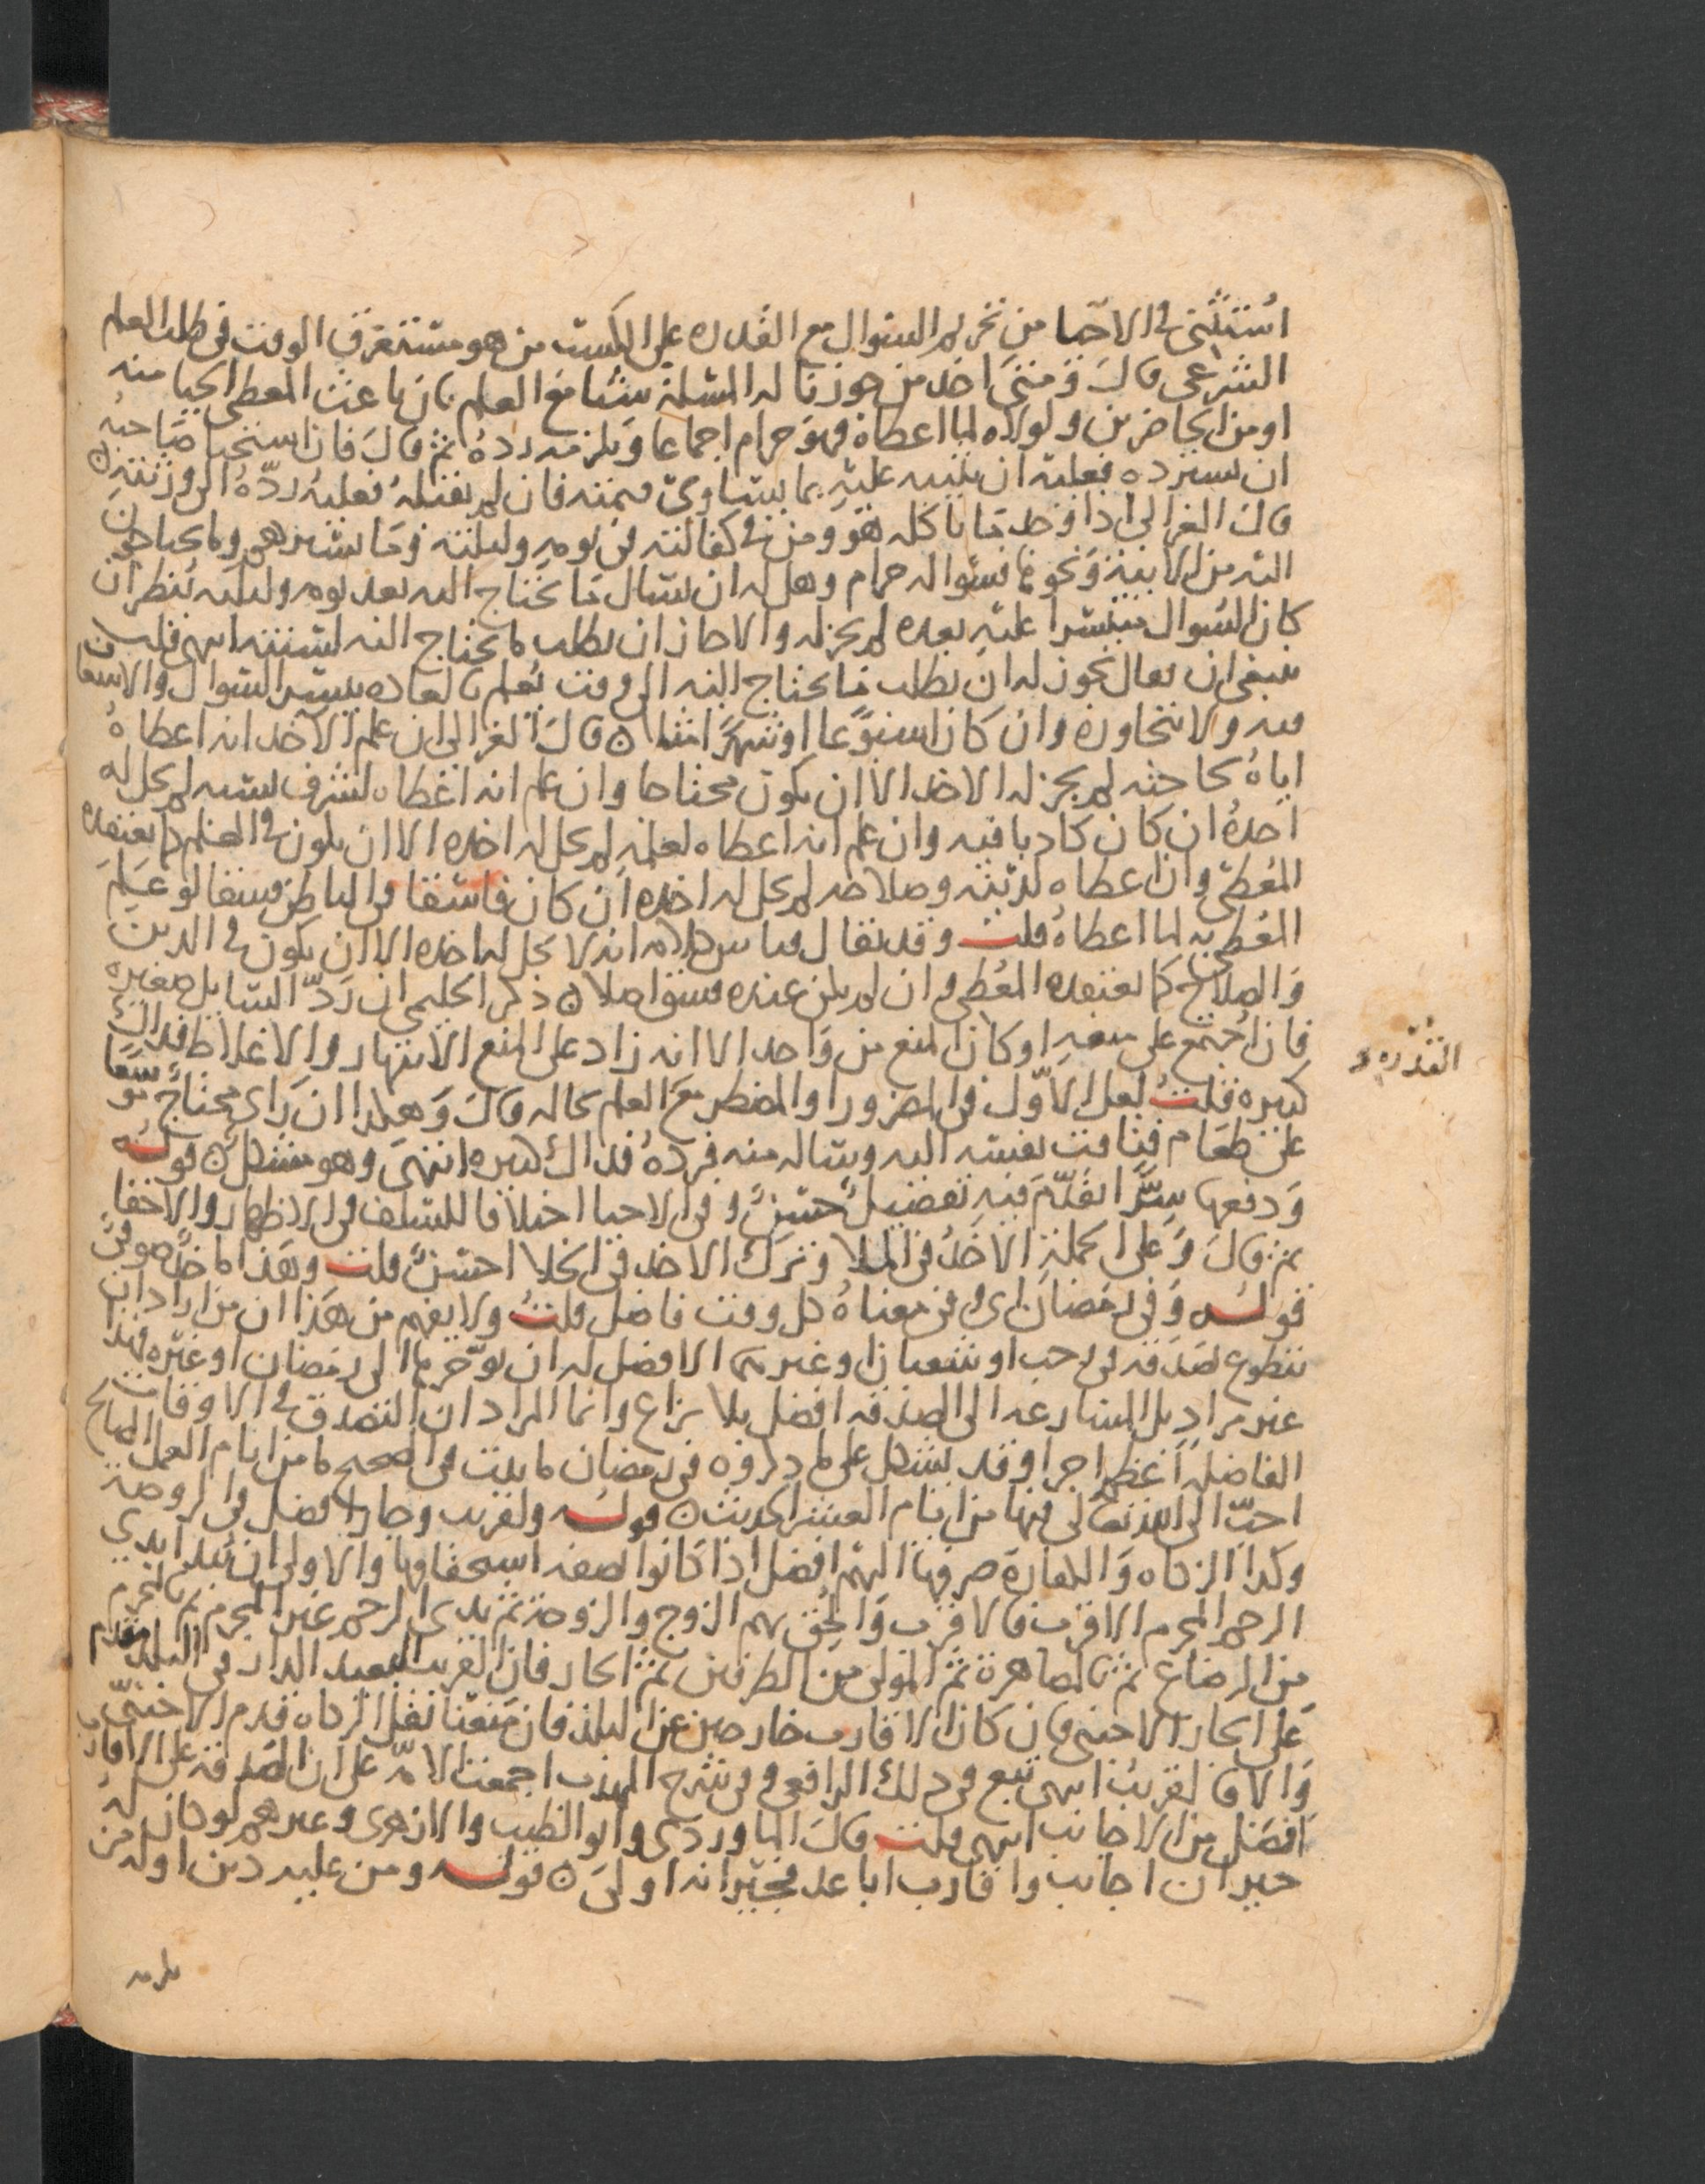 استثنى في الاحيا من تحريم السوال مع القدره على الكسب من هو مستغرق الوقت في طلب العلم
الشرعى قال ومتى اخذ من جوزنا له المسلة شيا مع العلم بان باعث المعطى الحيا منه
او من الحاضرين ولولاه لما اعطاه فهو حرام اجماعا ويلزمه رده ثم قال فان استحيا صاحبه
ان يسترده فعليه ان يثيبه عليه بما يساوى قيمته فان لم يقبله فعليه رده الى ورثته
قال الغزالى اذا وجد ما ياكله هو ومن في كفالته في يومه وليلته وما يسترهم وما يحتاجون
اليه من الابنية ونحوها فسواله حرام وهل له ان يسال ما يحتاج اليه بعد يومه وليلته ينظر ان
كان السوال متيسرا عليه بعده لم يجز له والا جاز ان يطلب ما يحتاج اليه لسنته انتهى قلت
ينبغى ان يقال يجوز له ان يطلب ما يحتاج اليه الى وقت يعلم بالعاده تيسر السوال والاستغنا
فيه ولا يتجاوزه وان كان اسبوعا او شهرا مثلا ه قال الغزالى ان علم الآخذ انه اعطاه
اياه لحاجته لم يجز له الاخذ الا ان يكون محتاجا وان علم انه اعطاه لشرف نسبه لم يحل له
اخذه ان كان كاذبا فيه وان علم انه اعطاه لعلمه لم يحل له اخذه الا ان يكون في العلم كما يعتقده
المعطى وان اعطاه لدينه وصلاحه لم يحل له اخذه ان كان فاسقا في الباطن فسقا لو علم
المعطى به لما اعطاه قلت وقد يقال قياس كلامه انه لا يحل له اخذه الا ان يكون في الدين
والصلاح كما يعتقده المعطى وان لم يكن عنده فسق اصلا ه ذكر الحليمى ان رد السايل صغيره
فان اجتمع على منعه او كان المنع من واحد الا انه زاد على المنع الانتهار والاغلاظ فذاك
كبيره قلت لعل الاول في المضرور او المضطر مع العلم بحاله قال وهكذا ان راى محتاج موسعا
على طعام فتاقت نفسه اليه وساله منه فرده فذاك كبيره انتهى وهو مشكل ه قوله
ودفعها سرا تقدم فيه تفضيل حسن وفي الاحيا اختلافا للسلف في الاظهار والاخفا
ثم قال وعلى الجملة الاخذ في الملا وترك الاخذ في الخلا احسن قلت وهذا ماخذ صوفى
قوله وفي رمضان اى وفي معناه كل وقت فاضل قلت ولا يفهم من هذا ان من اراد ان
يتطوع بصدقه في رجب او شعبان او غيرهما الافضل له ان يوخرها الى رمضان او غيره فهذا
غير مراد بل المسارعه الى الصدقه افضل بلا نزاع وانما المراد ان التصدق في الاوقات
الفاضله اعظم اجرا وقد يشكل على ما ذكروه في رمضان ما ثبت في الصحيح ما من ايام العمل الصالح
احب الى الله تعالى فيها من ايام العشر الحديث ه قوله ولقريب وجار افضل في الروضة
وكذا الزكاه والكفارة صرفها اليهم افضل اذا كانوا بصفه استحقاقها والاولى ان يبدا بذى
الرحم المحرم الاقرب فالاقرب والحق بهم الزوج والزوجة ثم بذى الرحم غير المحرم ثم بالمحرم
من الرضاع ثم بالمصاهرة ثم المولى من الطرفين ثم الجار فان القريب البعيد الدار في البلد مقدم
على الجار الاجنبى فان كان الاقارب خارجين عن البلد فان منعنا نقل الزكاه قدم الاجنبى
والا فالقريب انتهى تبع في ذلك الرافعى وفي شرح المهذب اجمعت الامه على ان الصدقه على الاقارب
افضل من الاجانب انتهى قلت قال الماوردى وابو الطيب والازهرى وغيرهم لو كان له
جيران اجانب واقارب اباعد فجيرانه اولى ه قوله ومن عليه دين او له من
القدره